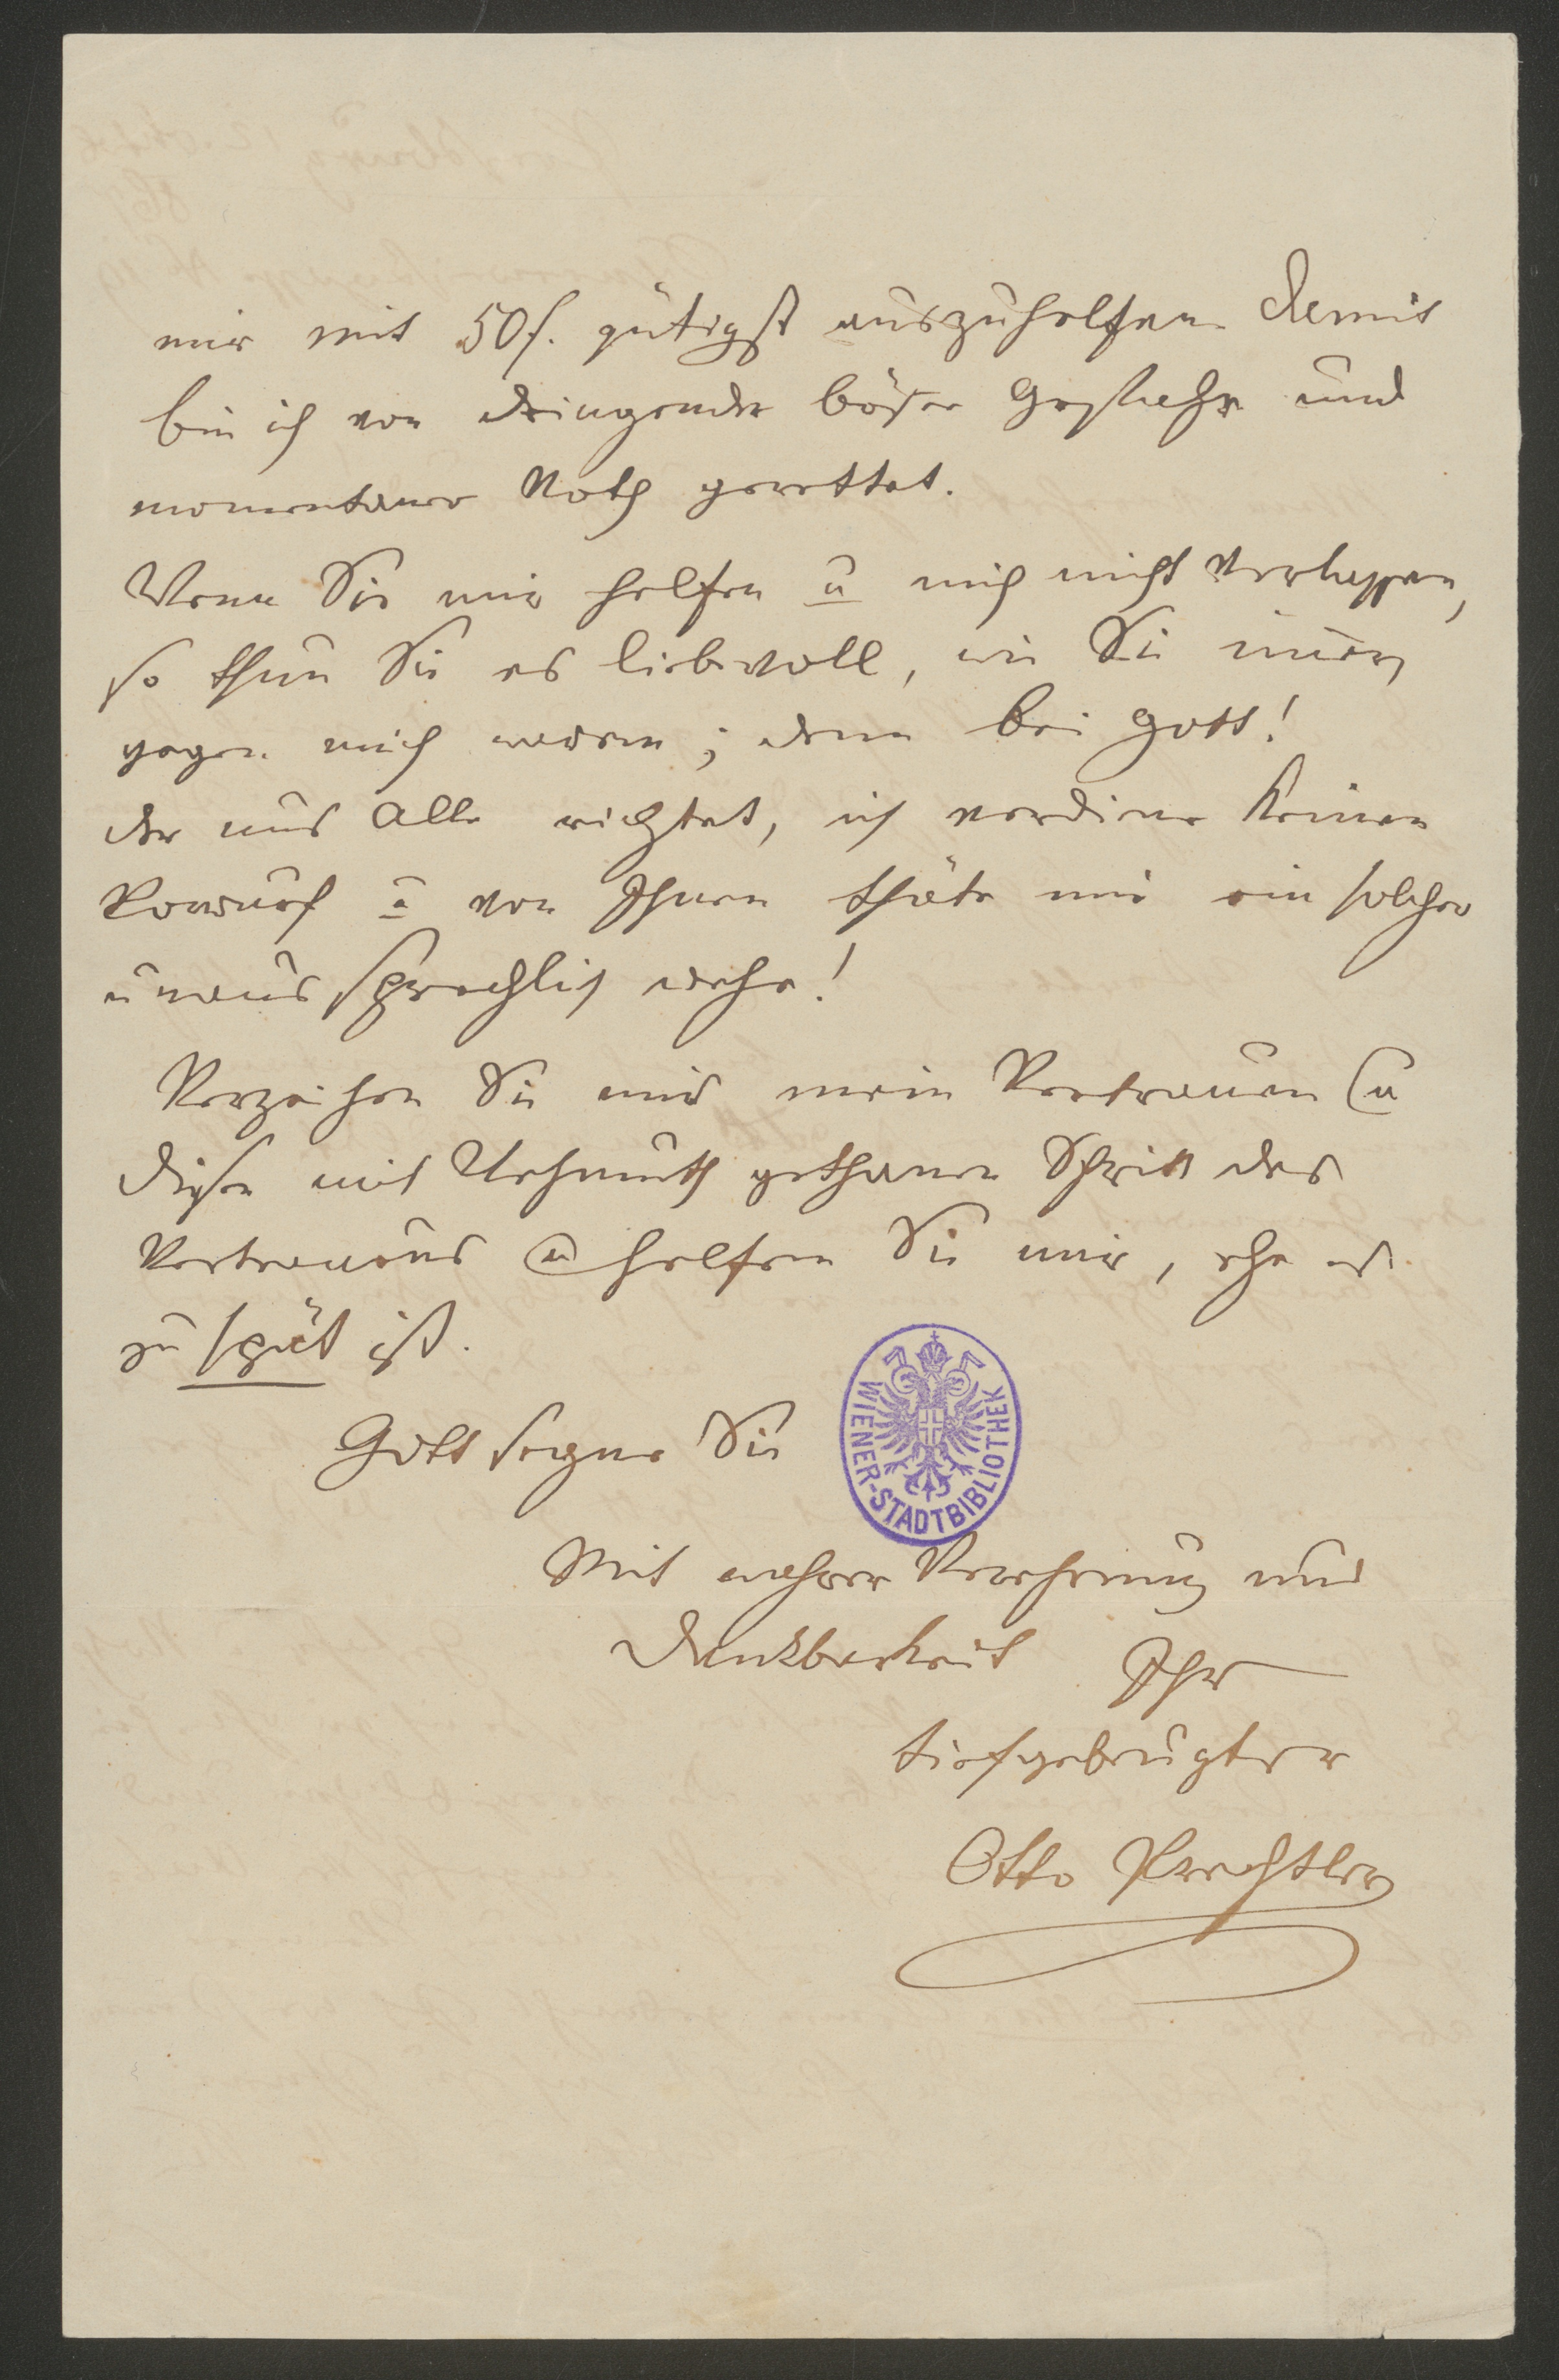 mir mit 50 f. gütigst auszuhelfen. Damit
bin ich von dringender böser Gefahr und
momentaner Noth gerettet.
Wenn Sie mir helfen u mich nicht verlassen,
so thun Sie es liebevoll, wie Sie immer
gegen mich waren; denn bei Gott!
der uns Alle richtet, ich verdiene keinen
Vorwurf u von Ihnen thäte mir ein solcher
unaussprechlich wehe!
Verzeihen Sie mir mein Vertrauen (u
diesen mit Wehmuth gethanen Schritt des
Vertrauens u helfen Sie mir, ehe es
zu spät ist.
Gott segne Sie
WIENER-STADTBIBLIOTHEK
Mit wahrer Verehrung und
Dankbarkeit Ihr
tiefgebeugter
Otto Prechtler